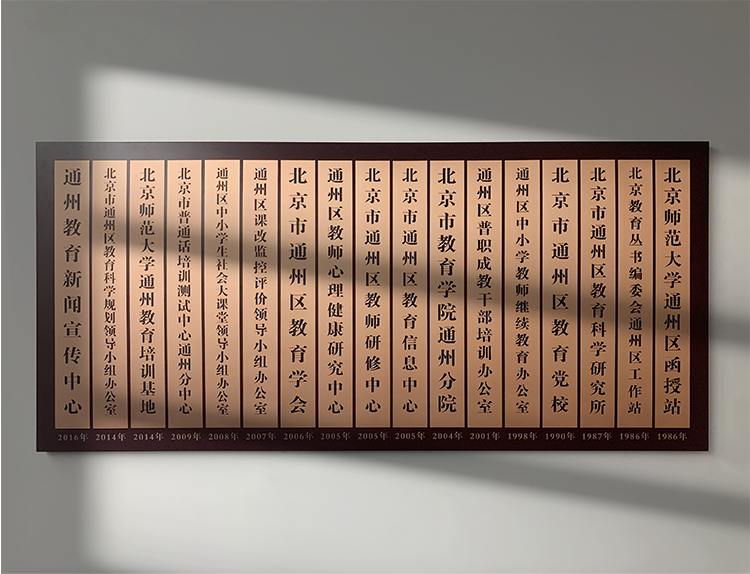 通州教育新闻宣传中心
北京市通州区教育科学规划领导小组办公室
北京师范大学通州教育培训基地
北京市普通话培训测试中心通州分中心
通州区中小学生社会大课堂领导小组办公室
通州区课改监控评价领导小组办公室
北京市通州区教育学会
通州区教师心理健康研究中心
北京市通州区教师研修中心
北京市通州区教育信息中心
北京市教育学院通州分院
通州区普职成教干部培训办公室
通州区中小学教师继续教育办公室
北京市通州区教育党校
北京市通州区教育科学研究所
北京教育丛书编委会通州区工作站
北京师范大学通州区函授站
2016年 2014年 2014年 2009年 2008年 2007年 2006年 2005年 2005年 2005年 2004年 2001年 1998年 1990年 1987年 1986年 1986年